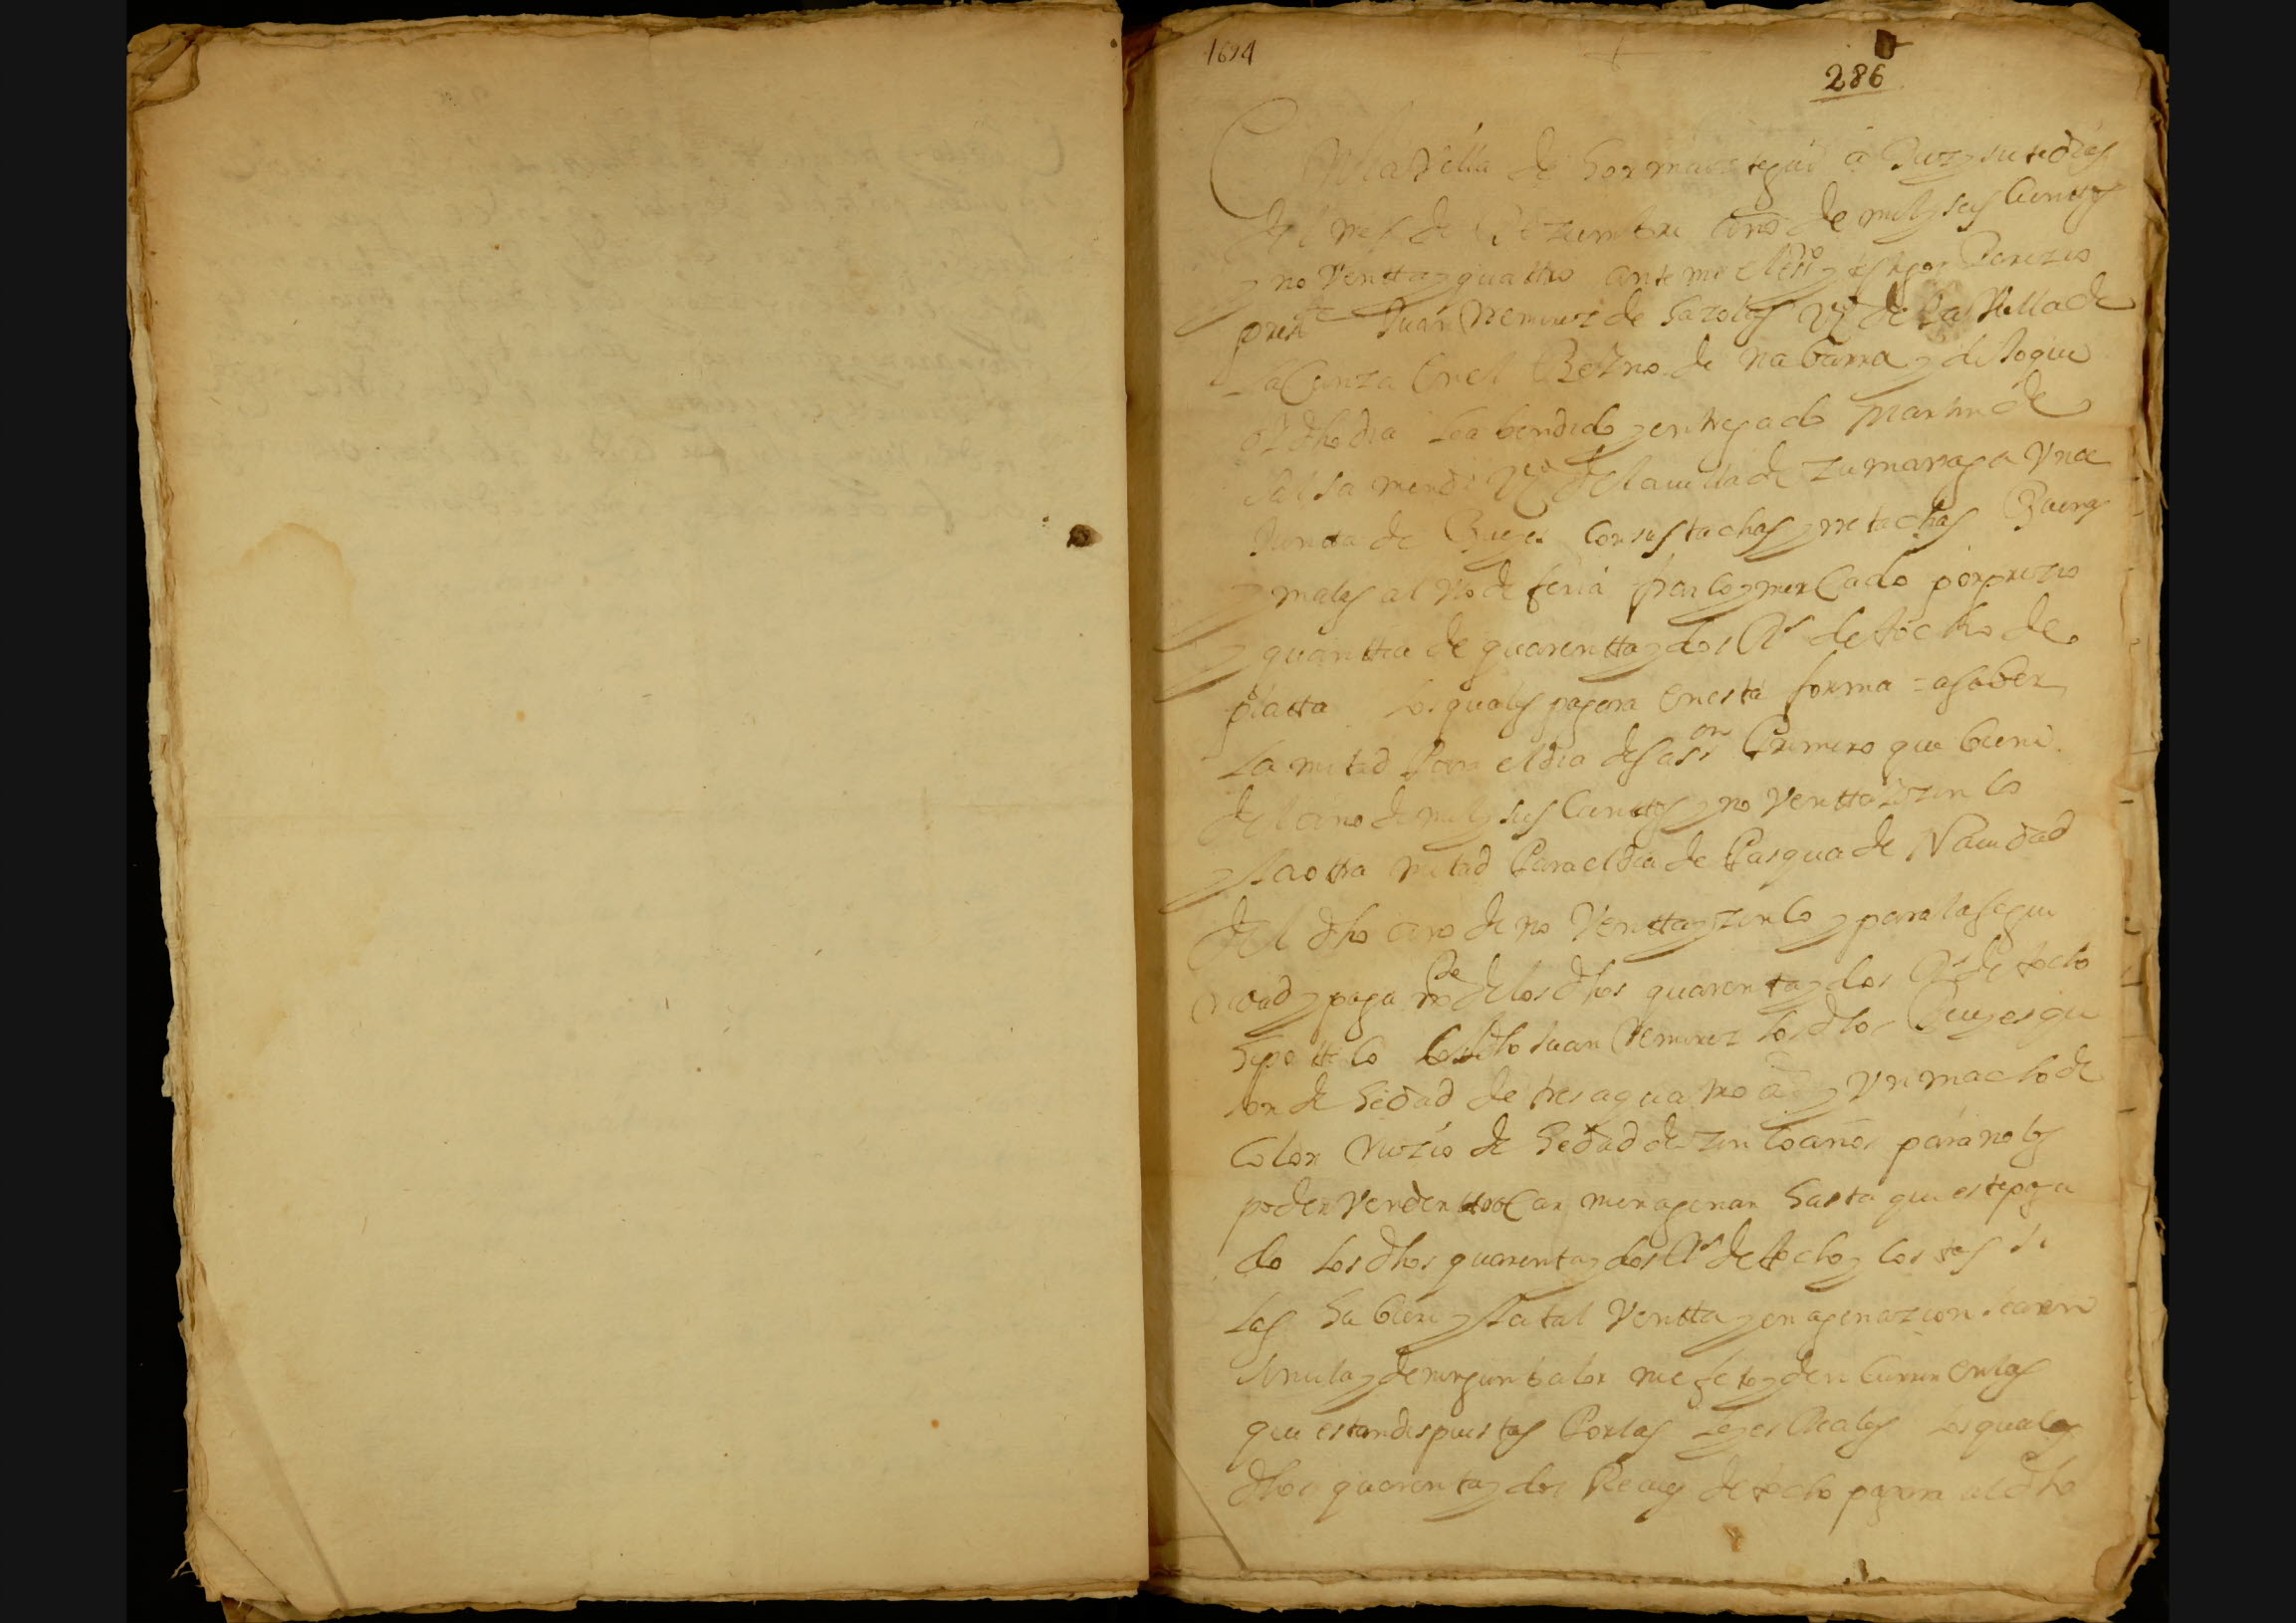 1694
286
En la Villa de Hormaiztegui a Diez y siete dias
del mes de Diziembre año de mil y seis cientos
y noventta y quattro ante mi el ess.no y testigos Parezio
press.te Juan Remirez de Hazolas Vº de la Villa de
la Cunza en el Reyno de nabarra y dijo que
oy dho dia le a bendido y entregado Martin de
Vº de la uilla de Zumarraga Una
Juntta de Bueyes con sus tachas y rretachas Buenas
y malas al uso de feria franco y mercado por prezio
y quanttia de quarentta y dos Rs de a ocho de
platta los quales pagara en esta forma = a saber
la mitad Para el dia de Primero que biene
del año de mil y seis cientos y noventta y zinco
y la otra mitad Para el dia de Pasqua de Nauidad
del dho año de noventta y zinco y para la segu
ridad y paga de los dhos quarenta y dos Rs de a ocho
hipotteco el dho Juan Remirez los dhos Bueyes que
son de hedad de tres a quatro as y Un macho de
color ruzio de hedad de zinco años para no los
poder vender ttrocar ni enagenar hasta que este paga
do los dhos quarenta y dos Rs de a ocho y costas si
las hubiere y la tal Ventta y enagenazion sea en
si nula y de ningun balor ni efeto y de incurrir en las
que estan dispuestas Por las leyes Reales los quales
dhos quarenta y dos Reales de a ocho pagara al dho